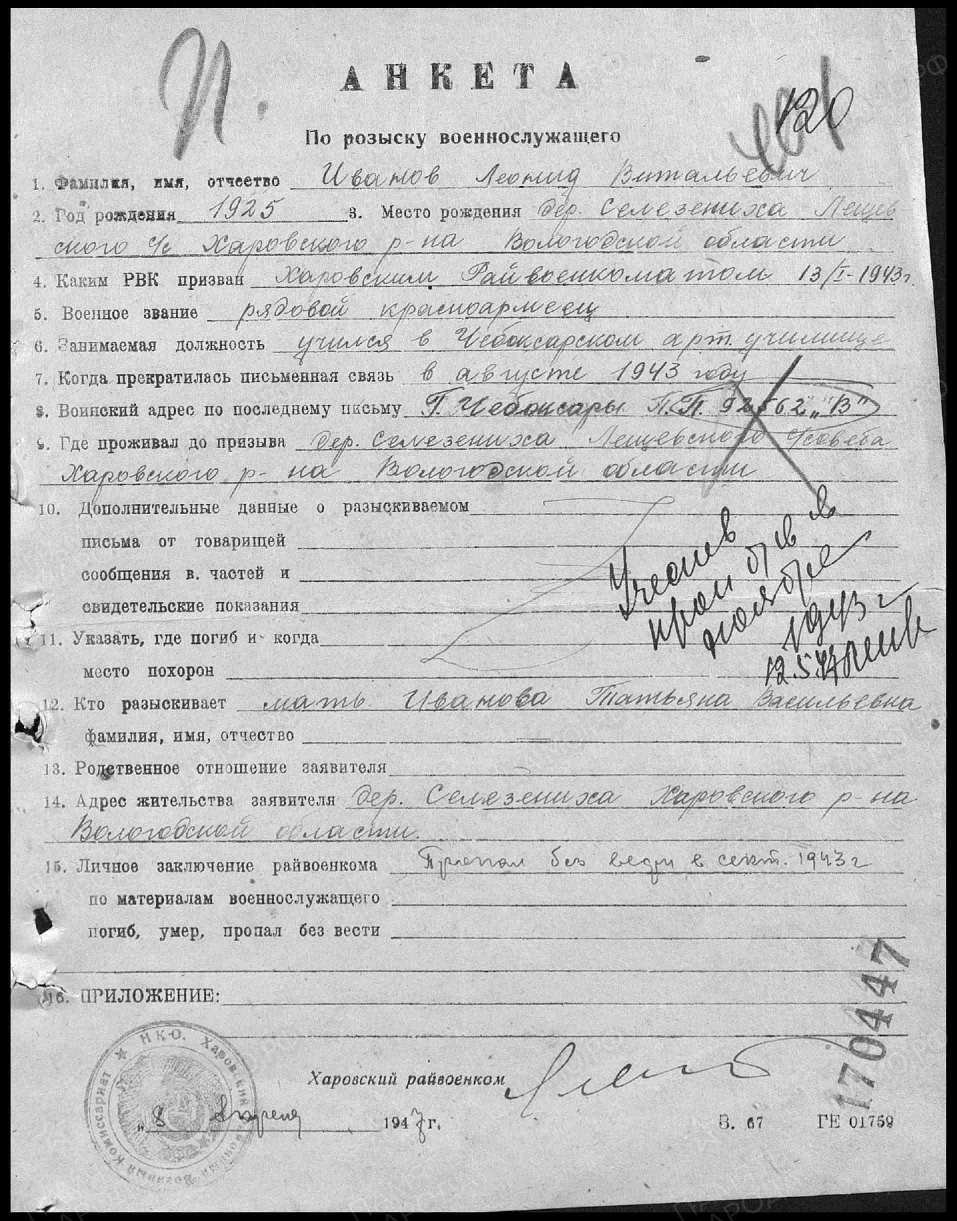 П.
АНКЕТА
120
По розыску военнослужащего
1. Фамилия, имя, отчество Иванов Леонид Витальевич
2. Год рождения 1925 3. Место рождения дер. Селезениха Лещев
ского с/с Харовского р-на Вологодской области
4. Каким РВК призван Харовским Райвоенкоматом 13/I-1943г.
5. Военное звание рядовой красноармеец
6. Занимаемая должность учился в Чебоксарском арт. училище
7. Когда прекратилась письменная связь в августе 1943 году
8. Воинский адрес по последнему письму Г. Чебоксары П.П. 92562 „В"
9. Где проживал до призыва дер. Селезениха Лещевского с/совета
Харовского р-на Вологодской области
10. Дополнительные данные о разыскиваемом
письма от товарищей
сообщения в. частей и
свидетельские показания
Учесть
проп б/в в
ноябре
1943 г
12.5.47
11. Указать, где погиб и когда
место похорон
12. Кто разыскивает мать Иванова Татьяна Васильевна
фамилия, имя, отчество
13. Родственное отношение заявителя
14. Адрес жительства заявителя дер. Селезениха Харовского р-на
Вологодской области.
15. Личное заключение райвоенкома Пропал без вести в сент. 1943 г
по материалам военнослужащего
погиб, умер, пропал без вести
16. ПРИЛОЖЕНИЕ:
170447
НКО. Харовский районный Военный Комиссариат
Харовский райвоенком
„8 апреля 1947 г.
З. 67 ГЕ 01759